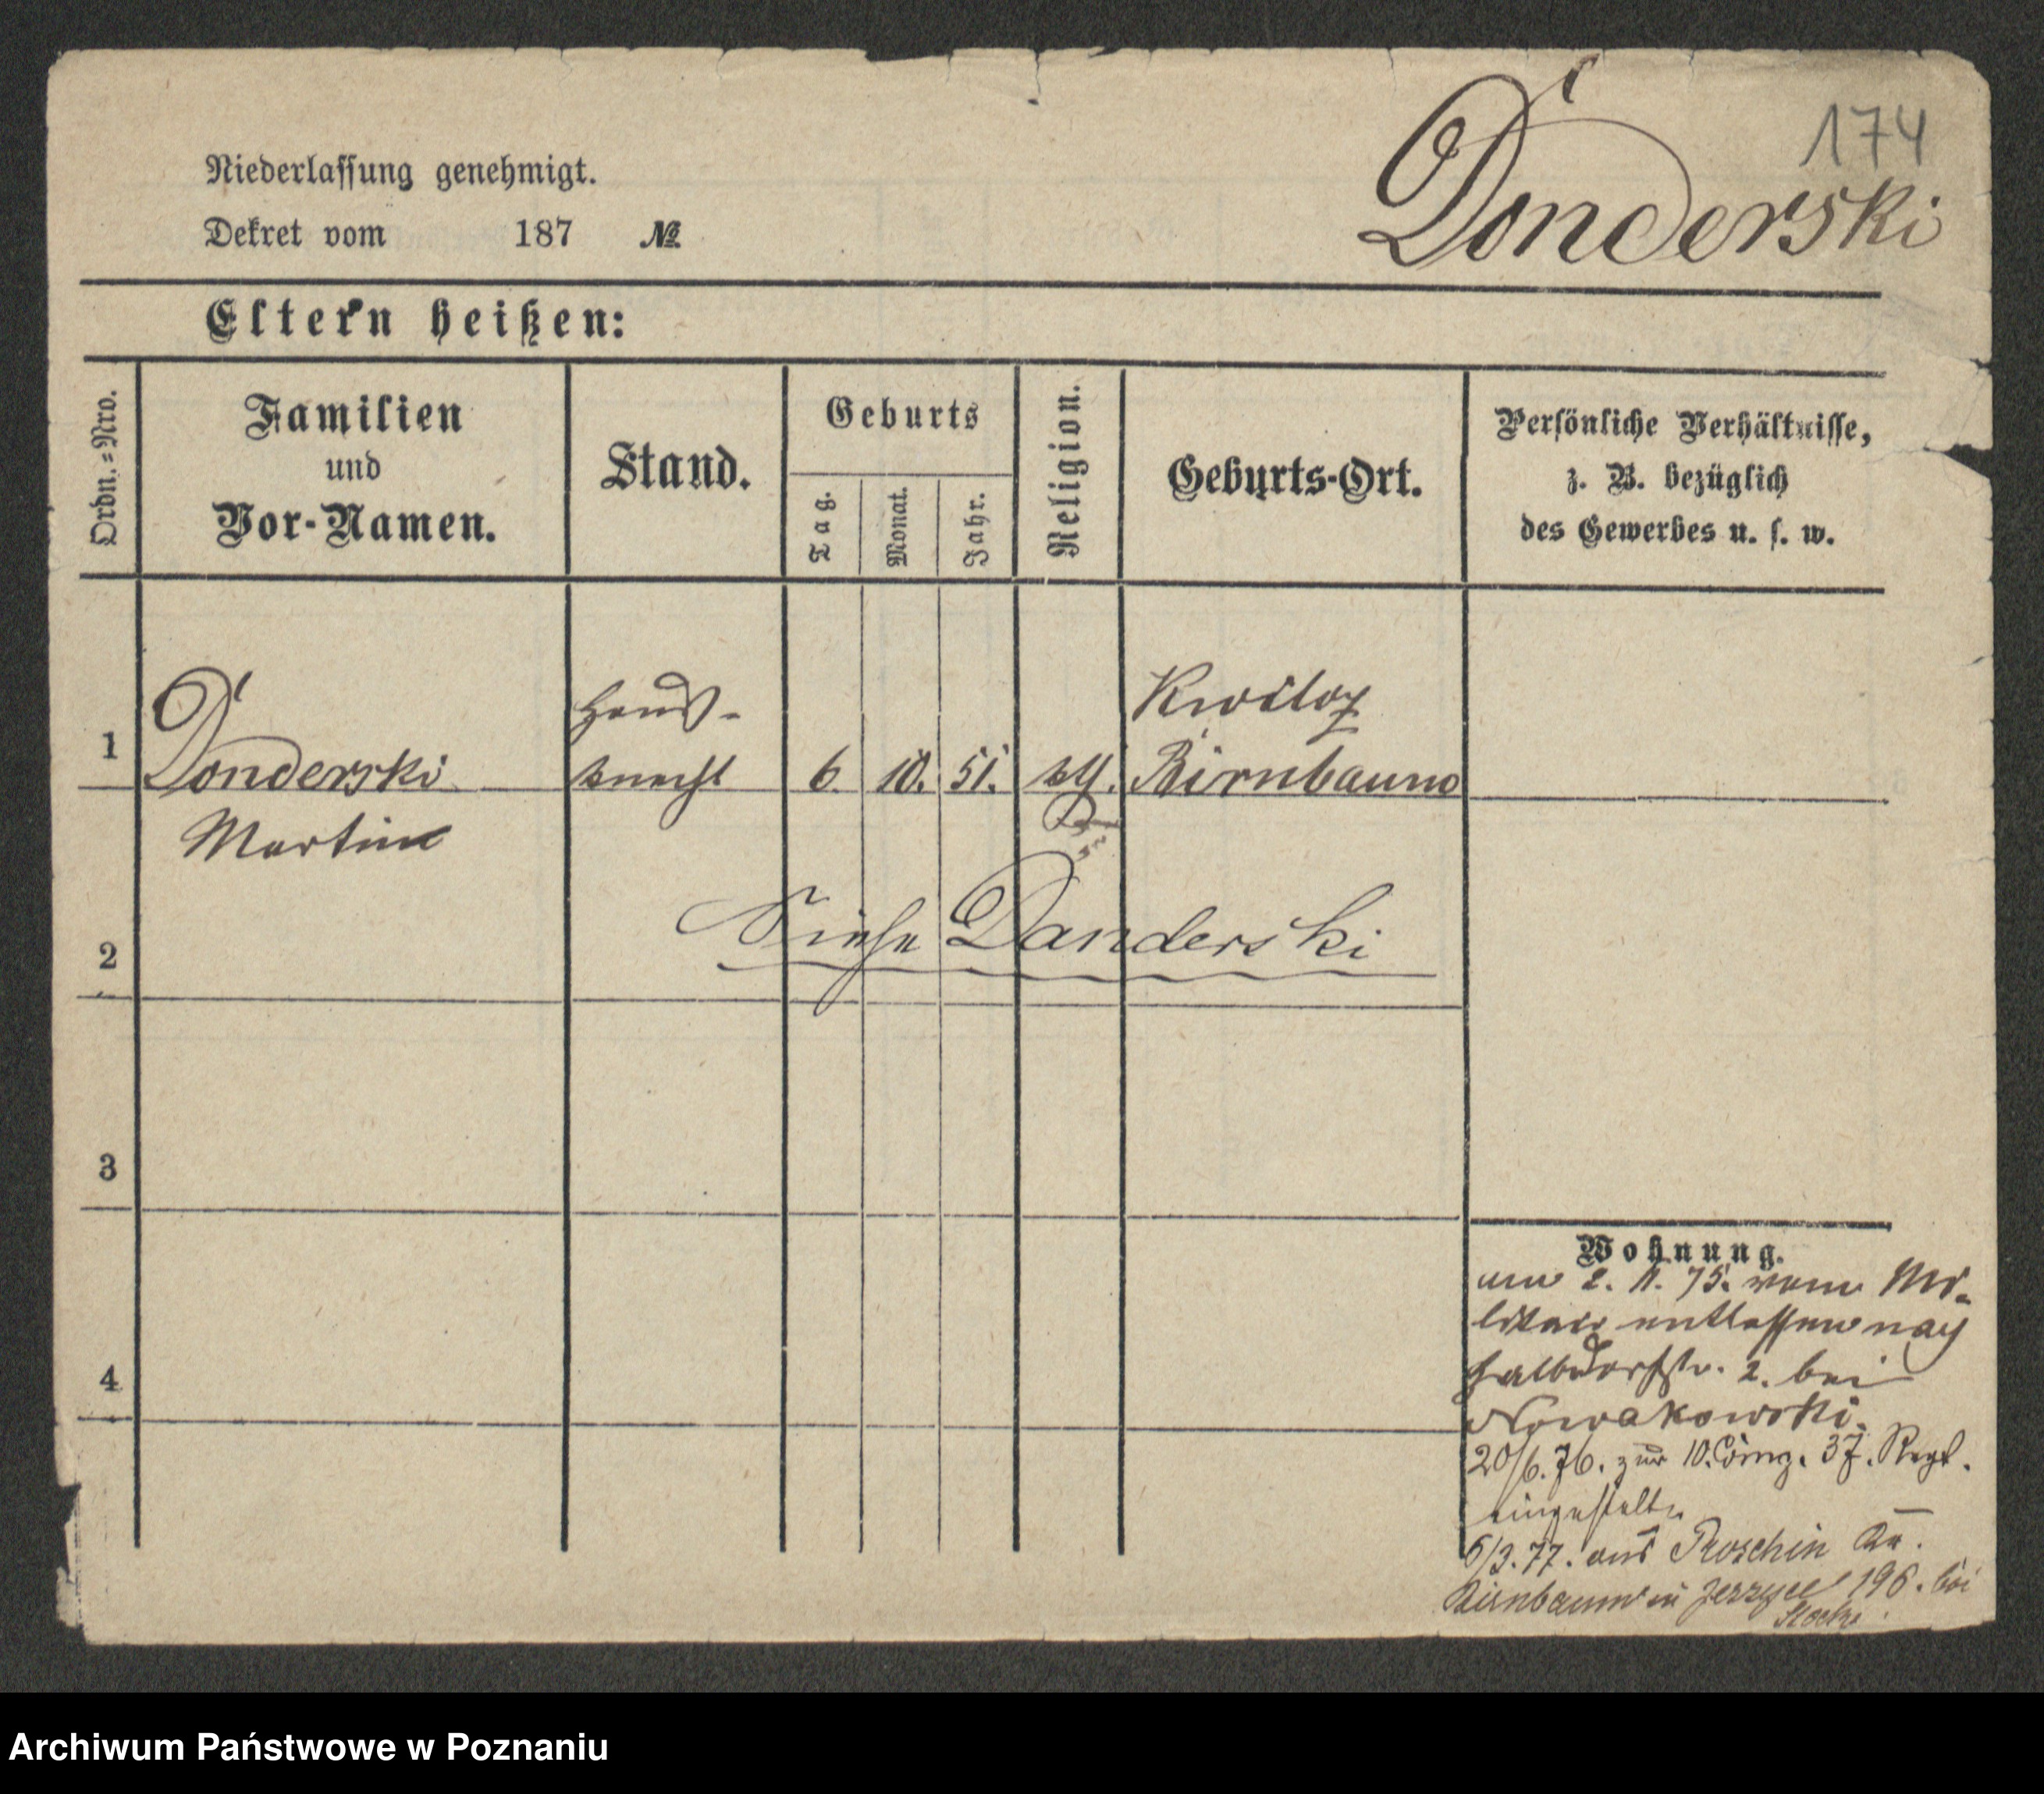 174
Donderski
Niederlassung genehmigt.
Dekret vom 187 №
Eltern heißen:
Ordn.=Nro.
Familien
und
Vor-Namen.
Stand.
Geburts
Tag.
Monat.
Jahr.
Religion.
Geburts-Ort.
Persönliche Verhältnisse,
z. B. bezüglich
des Gewerbes u. s. w.
Haus- Kwilcz
1 Donderski knecht 6. 10. 51. kth. Birnbaum
Martin
Siehe Danderski
2
3
4
Wohnung.
am 2. 11. 75. vom Mi-
litair entlassen nach
Halbdorfstr. 2. bei
Nowakowski.
20/6. 76. zur 10. Comp. 37. Regt.
eingestellt.
6/3. 77. aus Roschin Kr.
Birnbaum in Jerzyce 196. bei
Archiwum Państwowe w Poznaniu